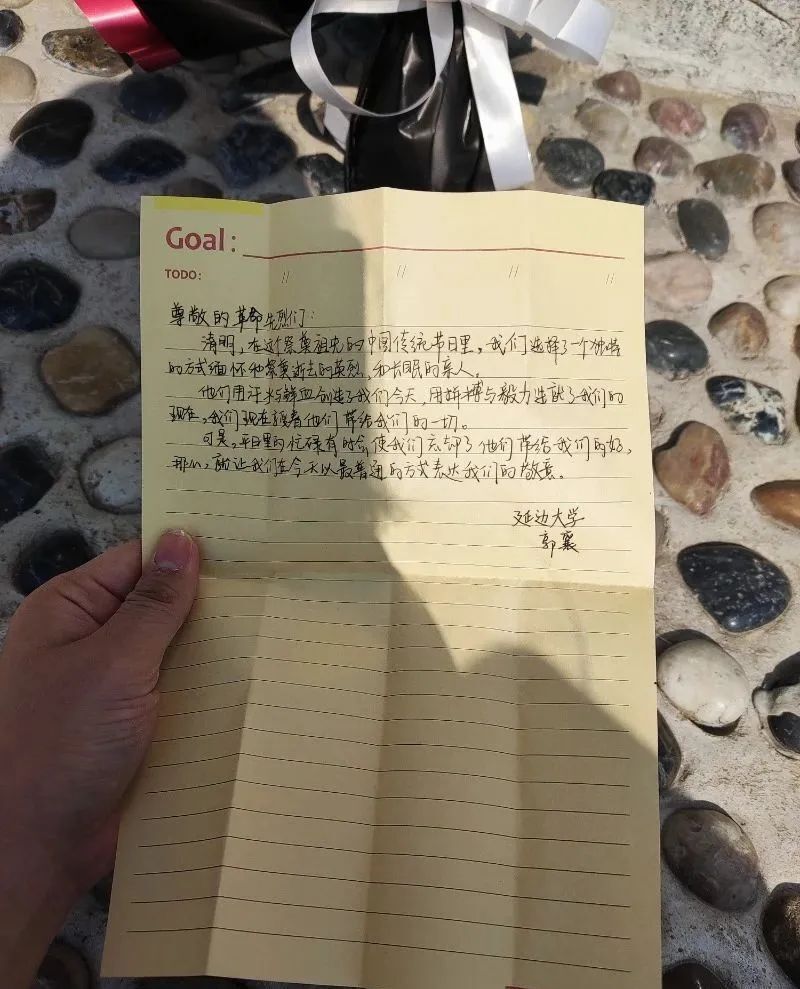 Goal:
TODO: // // // //
尊敬的革命先烈们:
清明,在这祭奠祖先的中国传统节日里,我们选择了一个独特
的方式缅怀和祭奠逝去的英烈,和长眠的亲人。
他们用汗水与鲜血创造了我们今天,用拼搏与毅力造就了我们的
现在,我们现在接着他们带给我们的一切。
可是,平日里的忙碌有时会使我们忘却了他们带给我们的好,
那么,就让我们在今天以最普通的方式表达我们的敬意。
延边大学
郭襄